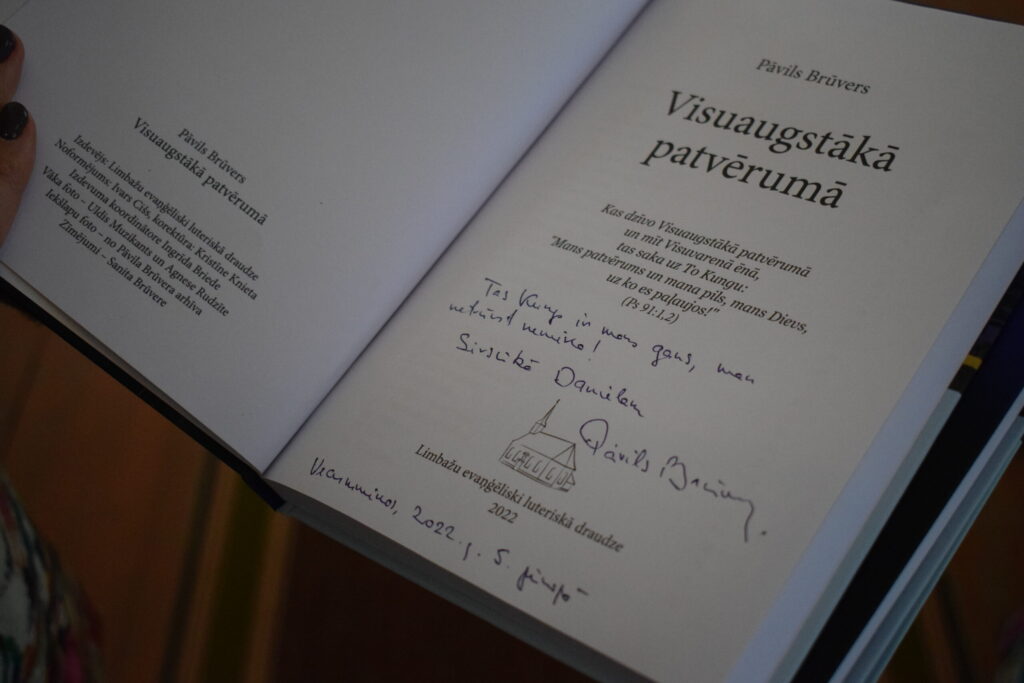 Pāvils Brūvers
Visuaugstākā patvērumā
Izdevējs: Limbažu evaņģēliski luteriskā draudze
Noformējums: Ivars Cišs, korektūra: Kristīne Knieta
Izdevuma koordinātore Ingrīda Briede
Vāka foto – Uldis Muzikants un Agnese Rudzīte
Iekšlapu foto – no Pāvila Brūvera arhīva
Zīmējumi – Sanita Brūvere
Pāvils Brūvers
Visuaugstākā
patvērumā
Kas dzīvo Visuaugstākā patvērumā
un mīt Visuvarenā ēnā,
tas saka uz To Kungu:
"Mans patvērums un mana pils, mans Dievs,
uz ko es paļaujos!"
(Ps 91:1,2)
Tas Kungs ir mans gans, man
netrūkst nenieka!
Sirsnīkā Danielam
Pāvils Brūvers.
Limbažu evaņģēliski luteriskā draudze
2022
2022.g. 5.